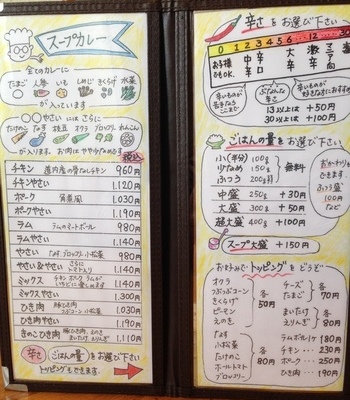 スープカレー
全てのカレーに
たまご 人参 いも しめじ きくらげ 水菜
が入っています
〇〇やさい には さらに
たけのこ なす 枝豆 オクラ ブロッコリー れんこん
が入ります。お肉はややすくなめです
税込
チキン 骨なしチキン 960円
チキンやさい 1,120円
ポーク 角煮風 1,030円
ポークやさい 1,190円
ラム ラムのミートボール 980円
ラムやさい 1,140円
やさい なす ブロッコリー 小松菜 980円
やさい&やさい さらにトマト入り 1,140円
ミックス チキン ポーク ラムが 1,140円
ミックスやさい 1,300円
ひき肉 豚ひき肉 小松菜 1,030円
ひき肉やさい 1,190円
きのこひき肉 豚ひき肉、えのき まいたけ、エリンギ 1,110円
辛さ ごはんの量をお選び下さい
トッピングもできます。
辛さをお選び下さい
0 1 2 3 4 5 6 12 30
お子様でもOK.
甘口 中辛 辛口 大辛 激辛
13以上は +50円
30以上は +100円
ごはんの量をお選び下さい
小(半分) 100g
少なめ 150g
ふつう 200g
無料
中盛 250g +30円
大盛 300g +50円
超大盛 400g +100円
おかわりもできます
ふつう盛 100円
など
スープ大盛 +150円
お好みでトッピングをどうぞ
オクラ
つぶつぶコーン
きくらげ
ピーマン
えのき
各50円
なす
小松菜
たけのこ
ホールトマト
ブロッコリー
各80円
チーズ
たまご
各70円
まいたけ
エリンギ
各80円
ラムボール1ケ 180円
チキン… 230円
ポーク… 250円
ひき肉… 190円